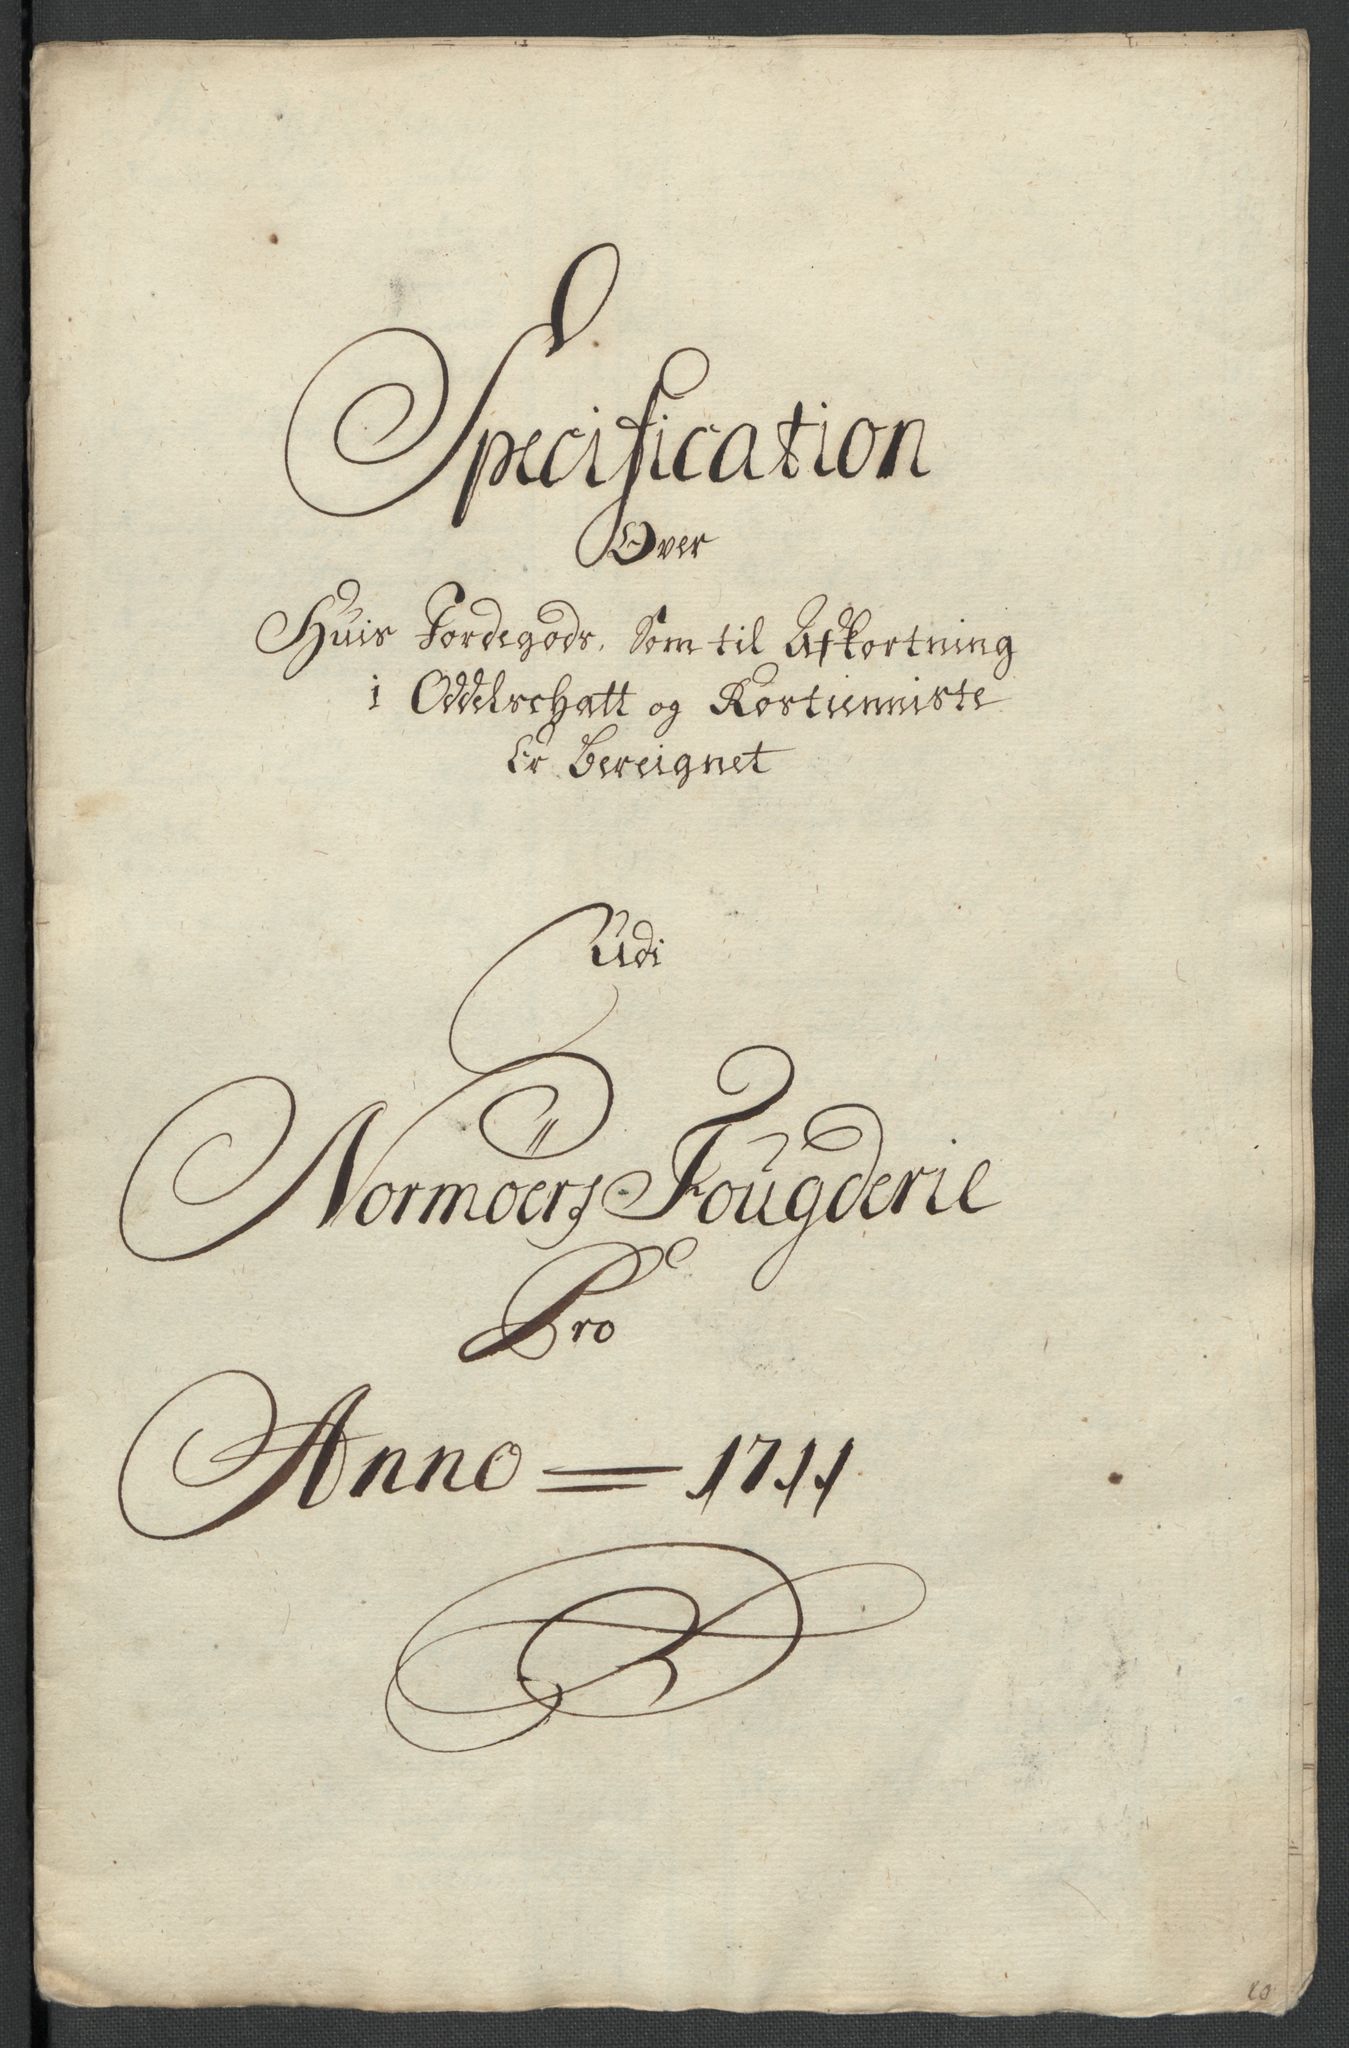 Specification
Over
Huis Jordegods, Som til Afkortning
i Oddelschatt og Rostienniste
Er bereignet
Udi
Normöers Fougderie
Pro
Anno = 1711